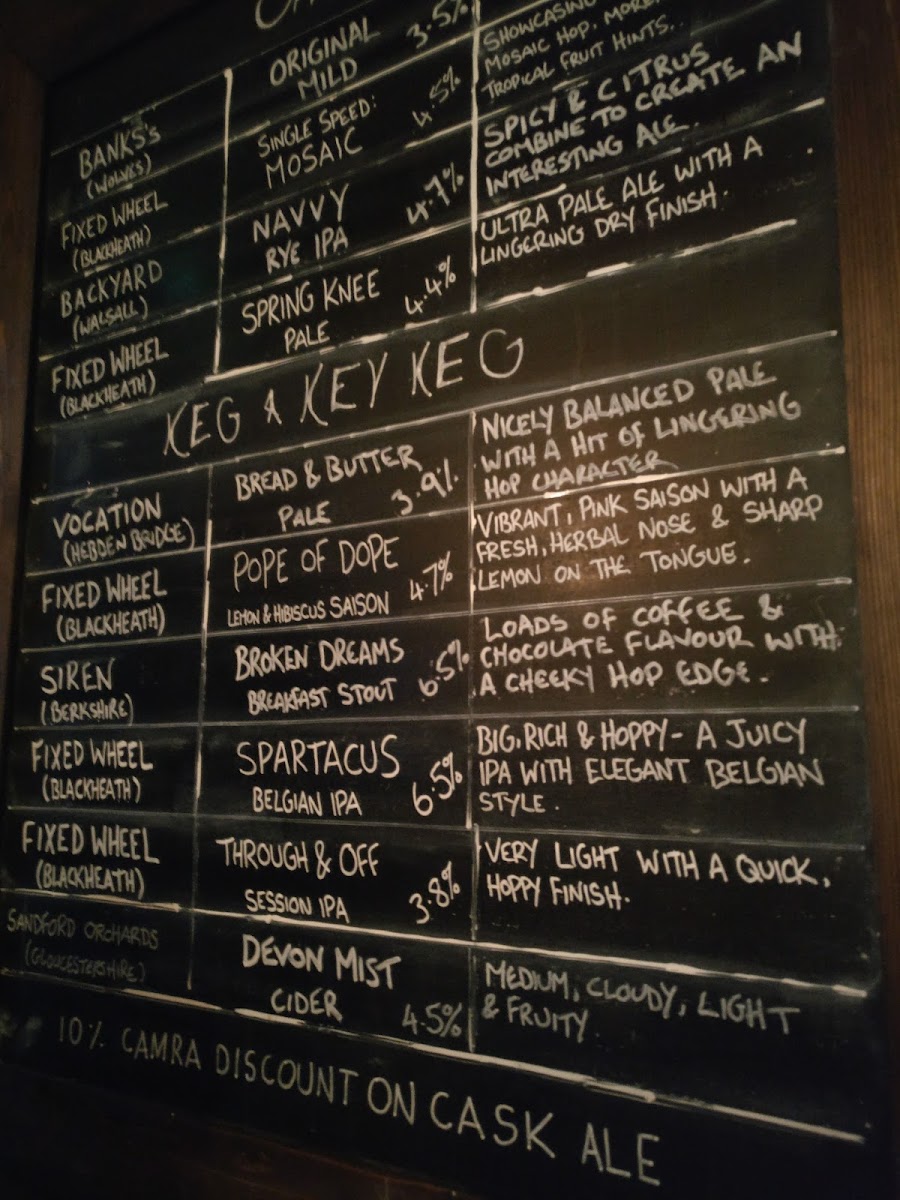 ORIGINAL
MILD
3.5%
BANKS's
(WOLVES)
SINGLE SPEED:
MOSAIC
4.5%
SHOWCASING
MOSAIC HOP, MORE
TROPICAL FRUIT HINTS.
FIXED WHEEL
(BLACKHEATH)
NAVVY
RYE IPA
4.7%
SPICY & CITRUS
COMBINE TO CREATE AN
INTERESTING ALE.
BACKYARD
(WALSALL)
SPRING KNEE
PALE
4.4%
ULTRA PALE ALE WITH A
LINGERING DRY FINISH.
FIXED WHEEL
(BLACKHEATH)
KEG & KEY KEG
VOCATION
(HEBDEN BRIDGE)
BREAD & BUTTER
PALE
3.9%
NICELY BALANCED PALE
WITH A HIT OF LINGERING
HOP CHARACTER
FIXED WHEEL
(BLACKHEATH)
POPE OF DOPE
LEMON & HIBISCUS SAISON
4.7%
VIBRANT, PINK SAISON WITH A
FRESH, HERBAL NOSE & SHARP
LEMON ON THE TONGUE.
SIREN
(BERKSHIRE)
BROKEN DREAMS
BREAKFAST STOUT
6.5%
LOADS OF COFFEE &
CHOCOLATE FLAVOUR WITH
A CHEEKY HOP EDGE.
FIXED WHEEL
(BLACKHEATH)
SPARTACUS
BELGIAN IPA
6.5%
BIG, RICH & HOPPY - A JUICY
IPA WITH ELEGANT BELGIAN
STYLE.
FIXED WHEEL
(BLACKHEATH)
THROUGH & OFF
SESSION IPA
3.8%
VERY LIGHT WITH A QUICK,
HOPPY FINISH.
SANDFORD ORCHARDS
(GLOUCESTERSHIRE)
DEVON MIST
CIDER
4.5%
MEDIUM, CLOUDY, LIGHT
& FRUITY
10% CAMRA DISCOUNT ON CASK ALE